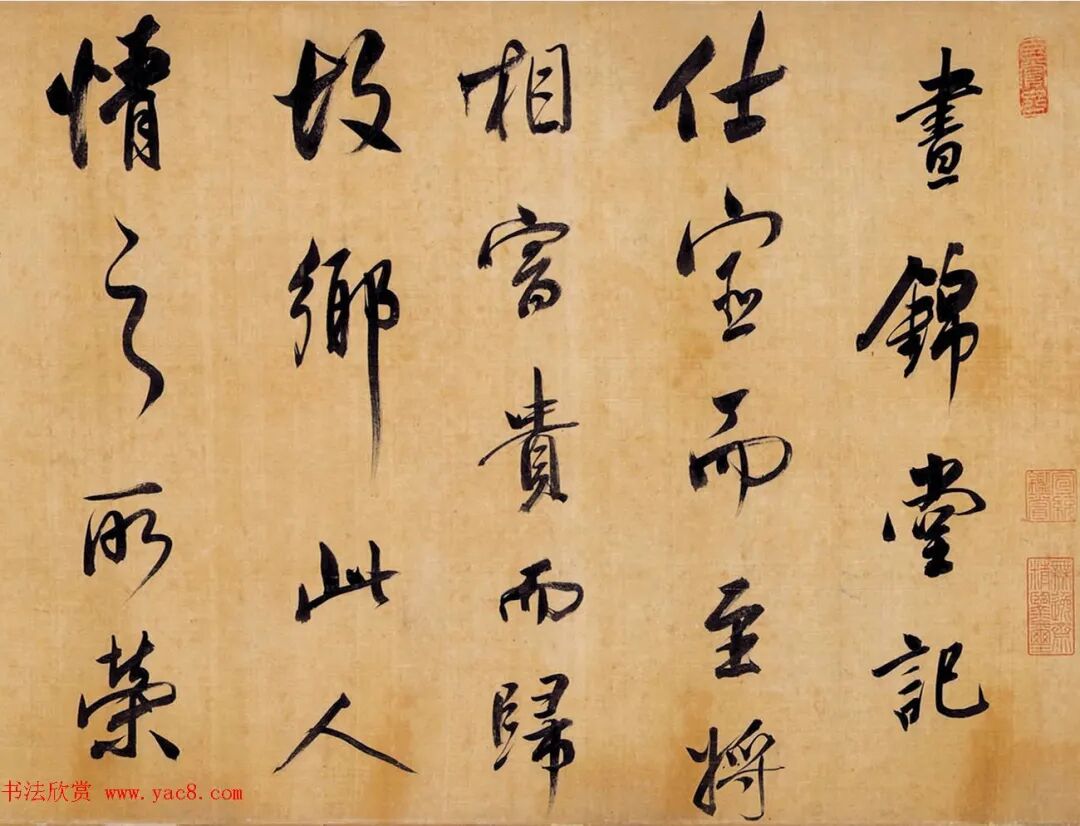 晝錦堂記
仕宦而至將
相富貴而歸
故鄉此人
情之所榮
书法欣赏 www.yac8.com